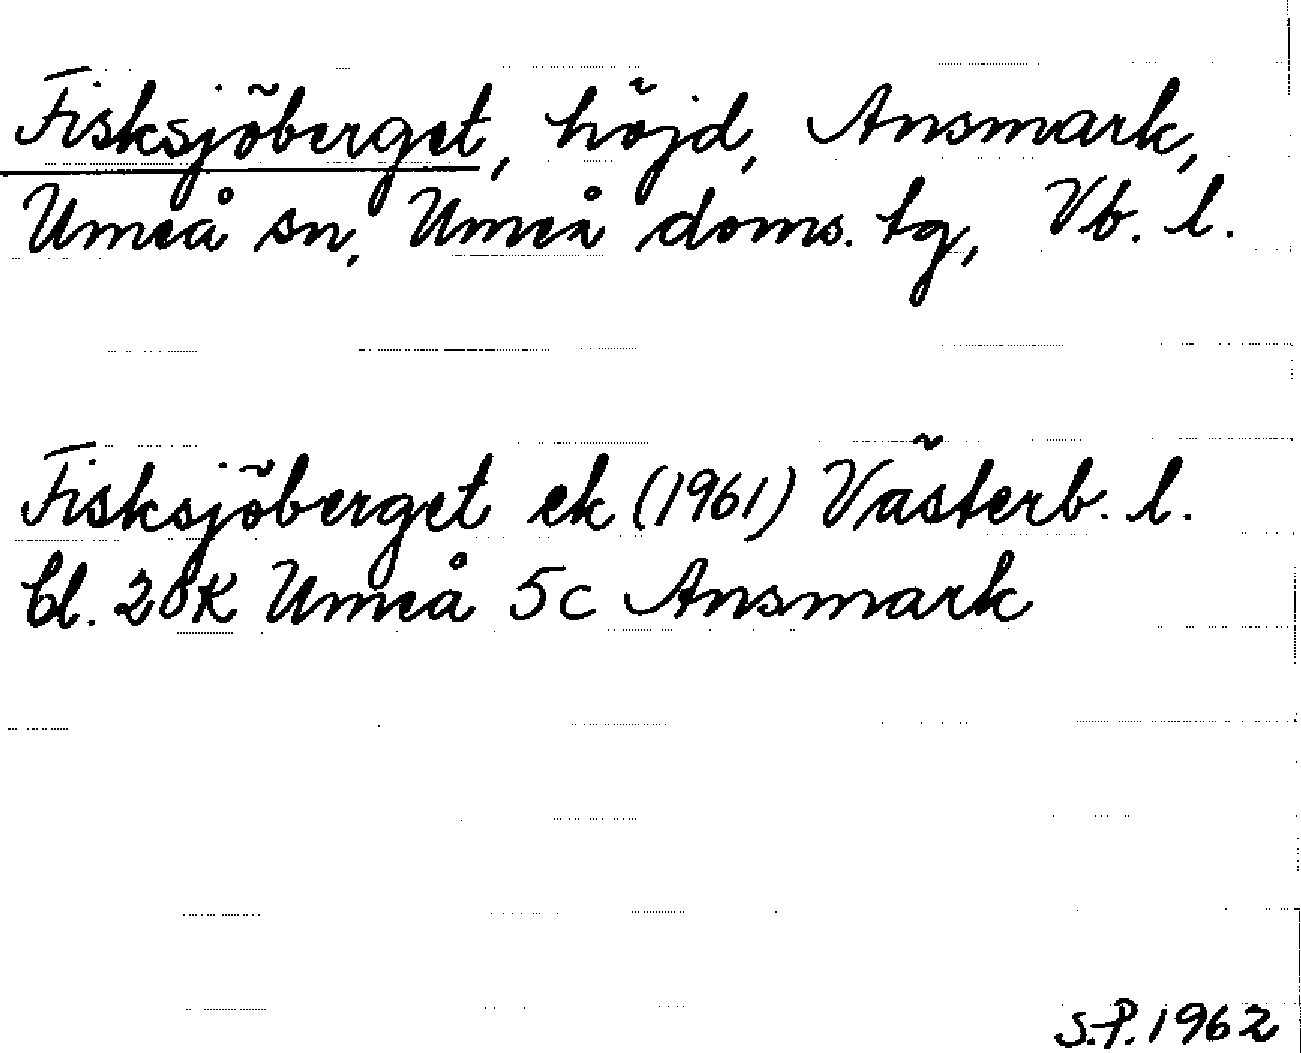 Fisksjöberget, höjd, Ansmark,
Umeå sn, Umeå doms. tg, Vb. l.
Fisksjöberget ek (1961) Västerb. l.
bl. 20K Umeå 5c Ansmark
S.P. 1962